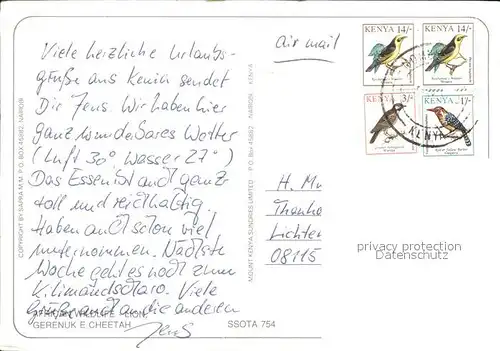 Viele herzliche Urlaubs-
grüße aus Kenia sendet
Dir Jens Wir haben hier
ganz wunderbares Wetter
(Luft 30° Wasser 27°)
Das Essen ist auch ganz
toll und reichhaltig
Haben auch schon viel
unternommen. Nächste
Woche geht es noch zum
Kilimandscharo. Viele
Grüße auch an die anderen
Jens
AFRICAN WILDLIFE LION,
GERENUK E CHEETAH
SSOTA 754
COPYRIGHT BY SAPRA M.M. P.O. BOX 45682, NAIROBI
MOUNT KENYA SUNDRIES LIMITED P.O. BOX 45682 NAIROBI KENYA
air mail
KENYA 14/-
KENYA 14/-
KENYA 3/-
KENYA 1/-
KENYA
H. Mu
Lichten
08115
privacy protection
Datenschutz